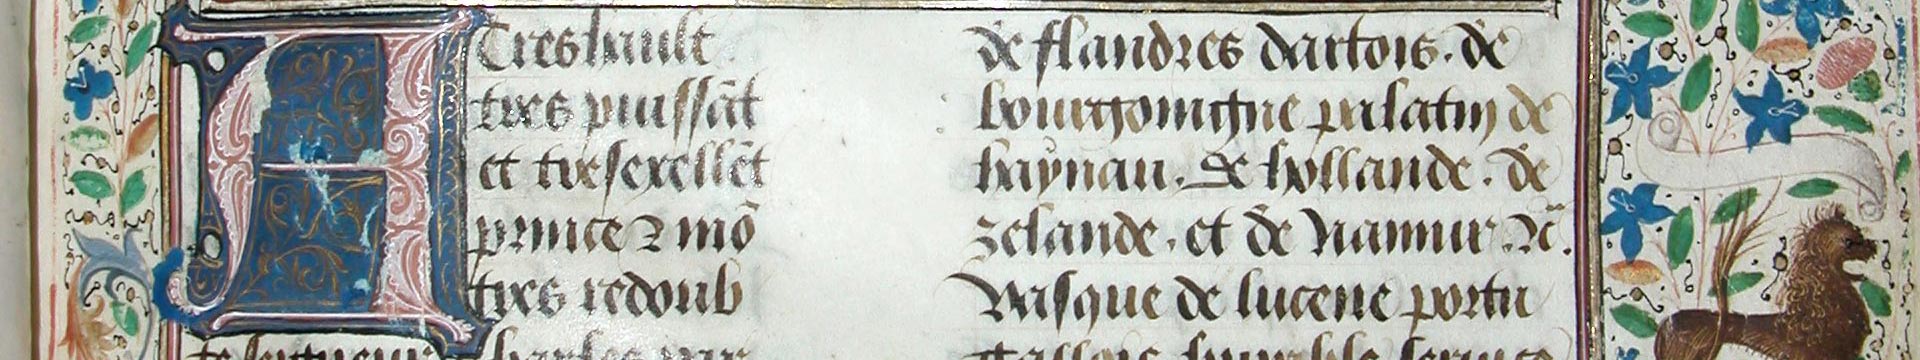 A Treshault
tres puissāt
et tresexellēt
prince ⁊ mō
tres redoub
te seigneur charles par
de flandres dartois. de
bourgoingne palatin de
haÿnau. de hollande. de
zelande. et de Namur. ⁊c̄.
Vasque de lucene portu
gallois humble seruite